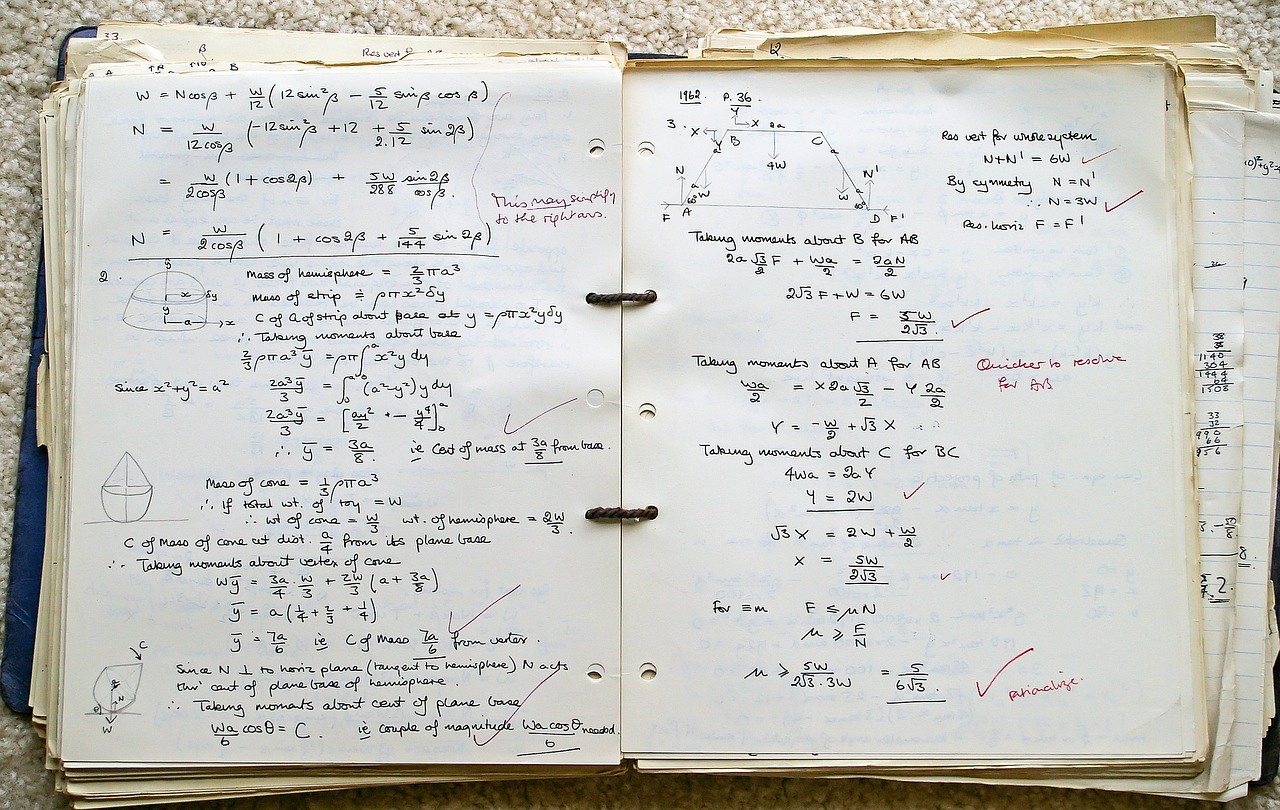 33.
β
Res vert
B
W = N cos β + W/12 (12 sin²β − 5/12 sin β cos β)
N = W/12cosβ (−12 sin²β + 12 + 5/2.12 sin 2β)
= W/2cosβ (1 + cos 2β) + 5W/288 sin 2β/cos β.
This may simplify
to the right ans.
N = W/2cosβ (1 + cos 2β + 5/144 sin 2β)
2.
y
x δy
y
a x
Mass of hemisphere = 2/3 π a³
Mass of strip ≑ ρπx²δy
C of G of strip about base at y = ρπx²yδy
∴ Taking moments about base
2/3 ρπa³ȳ = ρπ∫₀ᵃ x²y dy
Since x²+y² = a² 2a³ȳ/3 = ∫₀ᵃ (a²−y²) y dy
2a³ȳ/3 = [ay²/2 − y⁴/4]₀ᵃ
∴ ȳ = 3a/8 ie Cent of mass at 3a/8 from base.
Mass of cone = 1/3 ρπa³
∴ If total wt. of toy = W
∴ wt of cone = W/3 wt. of hemisphere = 2W/3.
C of Mass of cone at dist. a/4 from its plane base
∴ Taking moments about vertex of cone
Wȳ = 3a/4 . W/3 + 2W/3 (a + 3a/8)
ȳ = a(1/4 + 2/3 + 1/4)
ȳ = 7a/6 ie C of Mass 7a/6 from vertex.
C
N
θ
W
Since N ⊥ to horiz plane (tangent to hemisphere) N acts
thro' cent of plane base of hemisphere.
∴ Taking moments about cent of plane base
Wa/6 cosθ = C. ie couple of magnitude Wa cosθ/6 needed.
12.
1962. P. 36.
3.
Y
X X 2a
Y B C
a a
4W
N a a N'
W W
60° 60°
F A D F'
Res vert for whole system
N+N' = 6W
By symmetry N = N'
∴ N = 3W
Res. horiz F = F'
Taking moments about B for AB
2a √3/2 F + Wa/2 = 2aN/2
2√3 F + W = 6W
F = 5W/2√3.
Taking moments about A for AB
Quicker to resolve
for AB
Wa/2 = X 2a √3/2 − Y 2a/2
Y = −W/2 + √3 X
Taking moments about C for BC
4Wa = 2aY
Y = 2W
√3 X = 2W + W/2
X = 5W/2√3
For ≡m F ≤ μN
μ ≥ F/N
μ ≥ 5W/2√3.3W = 5/6√3.
rationalize.
38
38
1140
304
1444
64
1508
33
32
990
66
956